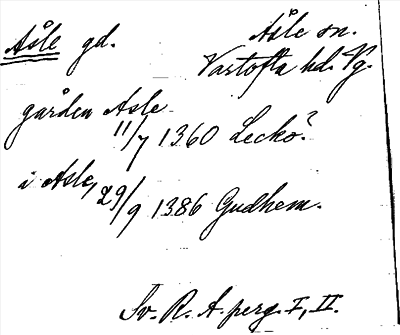 Åsle gd.
Åsle sn.
Vartofta hd. Vg.
gården Asle
11/7 1360 Leckö?
i Asle, 29/9 1386 Gudhem.
Sv. R. A. perg. I, II.